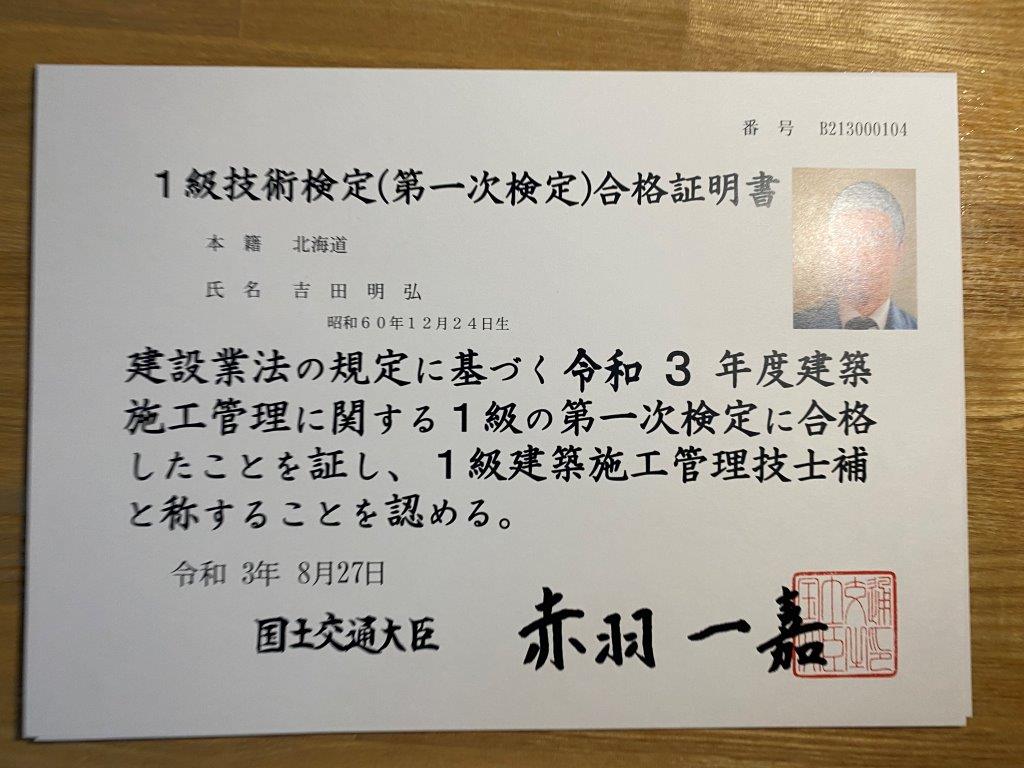 番 号 B213000104
1級技術検定(第一次検定)合格証明書
本 籍 北海道
氏 名 吉 田 明 弘
昭和60年12月24日生
建設業法の規定に基づく令和 3 年度建築
施工管理に関する1級の第一次検定に合格
したことを証し、1級建築施工管理技士補
と称することを認める。
令和 3年 8月27日
国土交通大臣 赤羽 一嘉